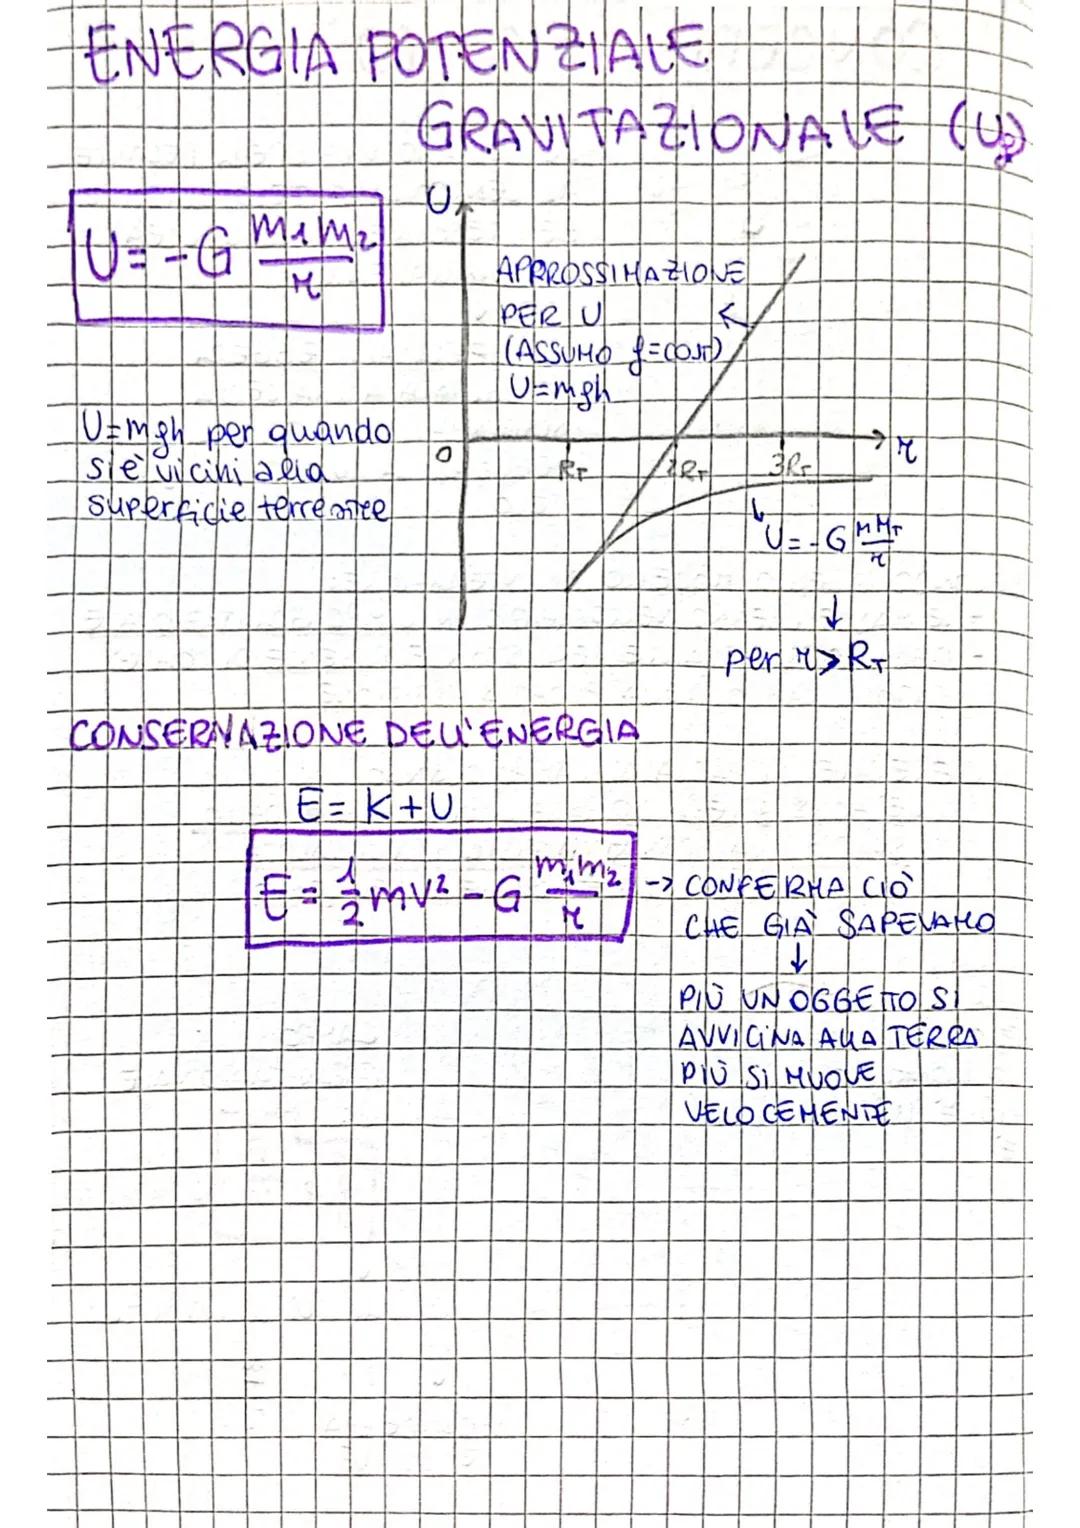 ENERGIA POTENZIALE
GRAVITAZIONALE (Ug)
U = -G m1m2/r
U
APPROSSIMAZIONE
PER U
(ASSUMO g=cost)
U=mgh
U=mgh per quando
si è vicini alla
superficie terrestre
0
RT
2RT
3RT
r
U=-G MMT/r
↓
per r>RT
CONSERVAZIONE DELL'ENERGIA
E = K+U
E = 1/2 mv² - G m1m2/r
-> CONFERMA CIÒ
CHE GIÀ SAPEVAMO
↓
PIÙ UN OGGETTO SI
AVVICINA ALLA TERRA
PIÙ SI MUOVE
VELOCEMENTE